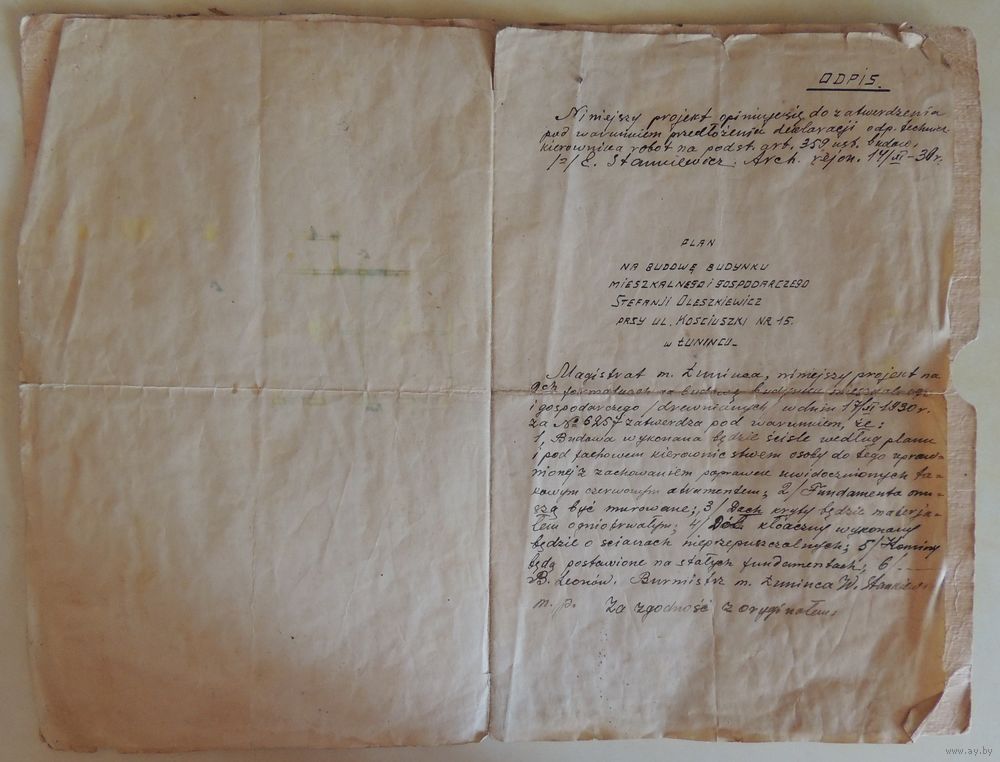 ODPIS.
Niniejszy projekt opinjuje się do zatwierdzenia
pod warunkiem przedłożenia deklaracji odp. techn.
kierownika robót na podst. art. 359 ust. budow.
/=/ E. Stankiewicz. Arch. rejon. 17/XI-30 r.
PLAN
NA BUDOWĘ BUDYNKU
MIESZKALNEGO I GOSPODARCZEGO
STEFANJI OLESZKIEWICZ
PRZY UL. KOŚCIUSZKI NR 15.
W ŁUNIŃCU_
Magistrat m. Łunińca, niniejszy projekt na
2ch formatach na budowę budynku mieszkalnego
i gospodarczego /drewnianych/ w dniu 17/XI 1930 r.
za № 6257 zatwierdza pod warunkiem, że:
1, Budowa wykonana będzie ściśle według planu
i pod fachowem kierownictwem osoby do tego upraw-
nionej z zachowaniem poprawek uwidocznionych ta-
kowym czerwonym atramentem; 2/ Fundamenta mu-
szą być murowane; 3/ Dach kryty będzie materja-
łem ogniotrwałym; 4/ Dół kloaczny wykonany
będzie o ścianach nieprzepuszczalnych; 5/ Kominy
będą postawione na stałych fundamentach; 6.
B. Leonów. Burmistrz m. Łunińca W.
m. p. Za zgodność z oryginałem.
www.ay.by